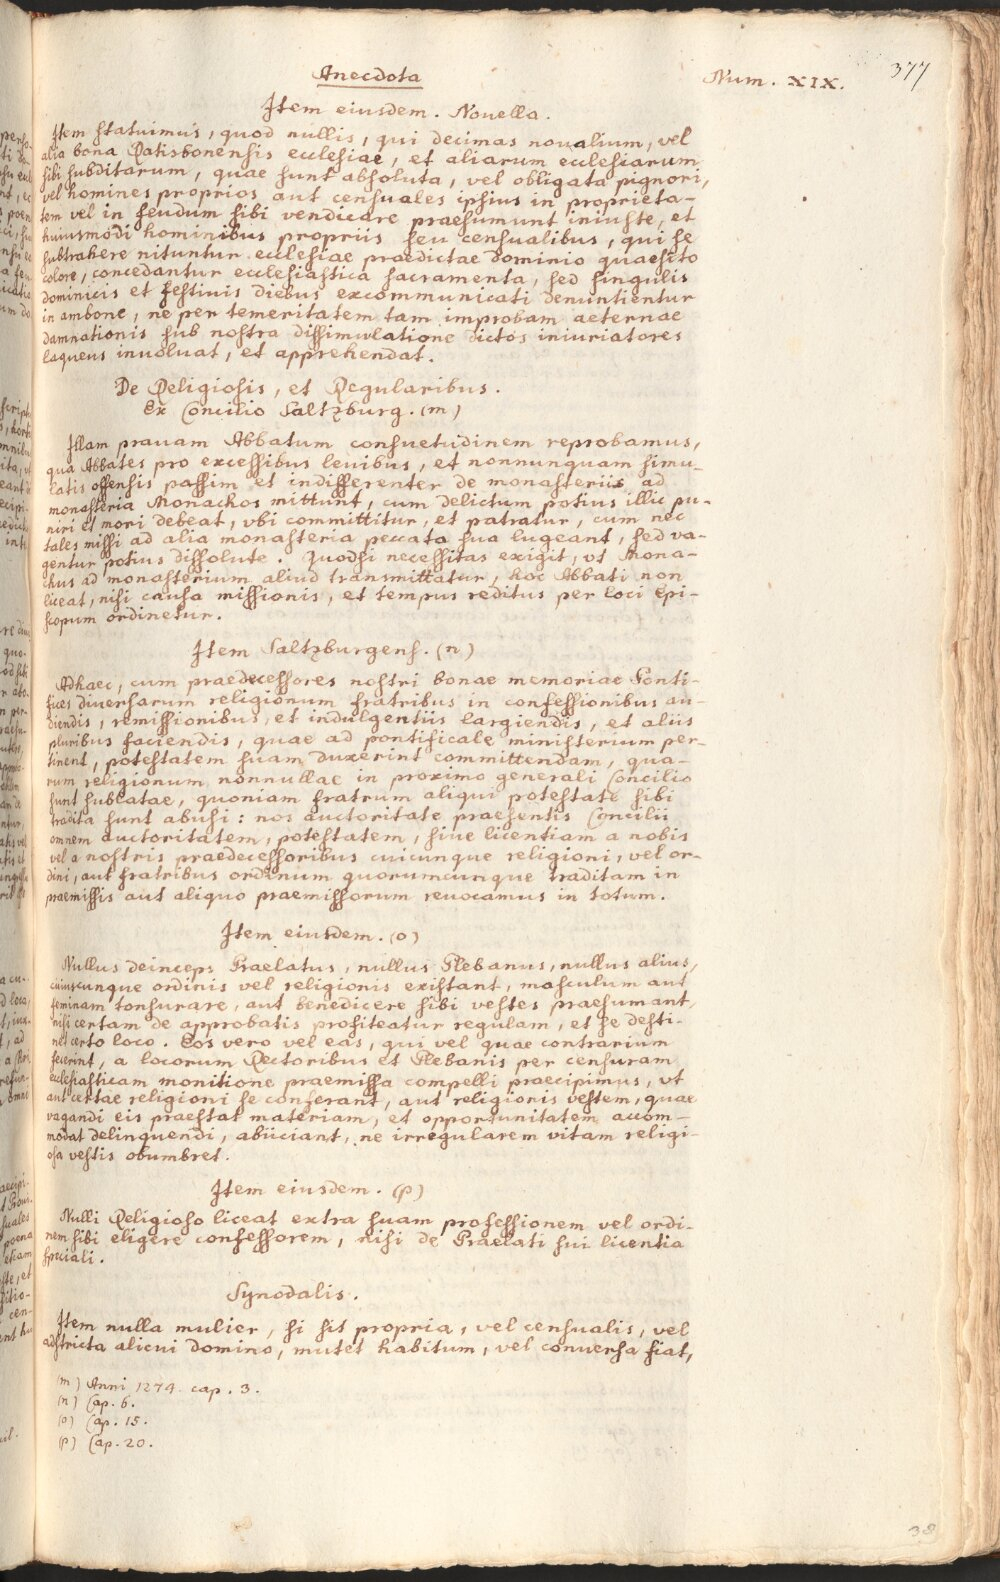 Anecdota
Num. XIX.
377
Item eiusdem. Nouella.
Item statuimus, quod nullis, qui decimas noualium, vel
alia bona Ratisbonensis ecclesiae, et aliarum ecclesiarum
sibi subditarum, quae sunt absoluta, vel obligata pignori,
vel homines proprios aut censuales ipsius in proprieta-
tem vel in feudum sibi vendicare praesumunt iniuste, et
huiusmodi hominibus propriis seu censualibus, qui se
subtrahere nituntur ecclesiae praedictae dominio quaesito
colore, concedantur ecclesiastica sacramenta, sed singulis
dominicis et festiuis diebus excommunicati denuntientur
in ambone, ne per temeritatem tam improbam aeternae
damnationis sub nostra dissimulatione dictos iniuriatores
laqueus inuoluat, et apprehendat.
De Religiosis, et Regularibus.
Ex Concilio Saltzburg. (m)
Illam prauam Abbatum consuetudinem reprobamus,
qua Abbates pro excessibus leuibus, et nonnunquam simu-
latis offensis passim et indifferenter de monasteriis ad
monasteria Monachos mittunt, cum delictum potius illic pu-
niri et mori debeat, vbi committitur, et patratur, cum nec
tales missi ad alia monasteria peccata sua lugeant, sed va-
gentur potius dissolute. Quodsi necessitas exigit, vt Mona-
chus ad monasterium aliud transmittatur, hoc Abbati non
liceat, nisi causa missionis, et tempus reditus per loci Epi-
scopum ordinetur.
Item Saltzburgens. (n)
Adhaec, cum praedecessores nostri bonae memoriae Ponti-
fices diuersarum religionum fratribus in confessionibus au-
diendis, remissionibus, et indulgentiis largiendis, et aliis
pluribus faciendis, quae ad pontificale ministerium per-
tinent, potestatem suam duxerint committendam, qua-
rum religionum nonnullae in proximo generali Concilio
sunt sublatae, quoniam fratrum aliqui potestate sibi
tradita sunt abusi: nos auctoritate praesentis Concilii
omnem auctoritatem, potestatem, siue licentiam a nobis
vel a nostris praedecessoribus cuicunque religioni, vel or-
dini, aut fratribus ordinum quorumcunque traditam in
praemissis aut aliquo praemissorum reuocamus in totum.
Item eiusdem. (o)
Nullus deinceps Praelatus, nullus Plebanus, nullus alius,
cuiuscunque ordinis vel religionis existant, masculum aut
feminam tonsurare, aut benedicere sibi vestes praesumant,
nisi certam de approbatis profiteatur regulam, et se desti-
net certo loco. Eos vero vel eas, qui vel quae contrarium
fecerint, a locorum Rectoribus et Plebanis per censuram
ecclesiasticam monitione praemissa compelli praecipimus, vt
aut certae religioni se conferant, aut religionis vestem, quae
vagandi eis praestat materiam, et opportunitatem accom-
modat delinquendi, abiiciant, ne irregularem vitam religi-
osa vestis obumbret.
Item eiusdem. (p)
Nulli Religioso liceat extra suam professionem vel ordi-
nem sibi eligere confessorem, nisi de Praelati sui licentia
speciali.
Synodalis.
Item nulla mulier, si sit propria, vel censualis, vel
adstricta alicui domino, mutet habitum, vel conuersa fiat,
(m) Anni 1274. cap. 3.
(n) Cap. 6.
(o) Cap. 15.
(p) Cap. 20.
38